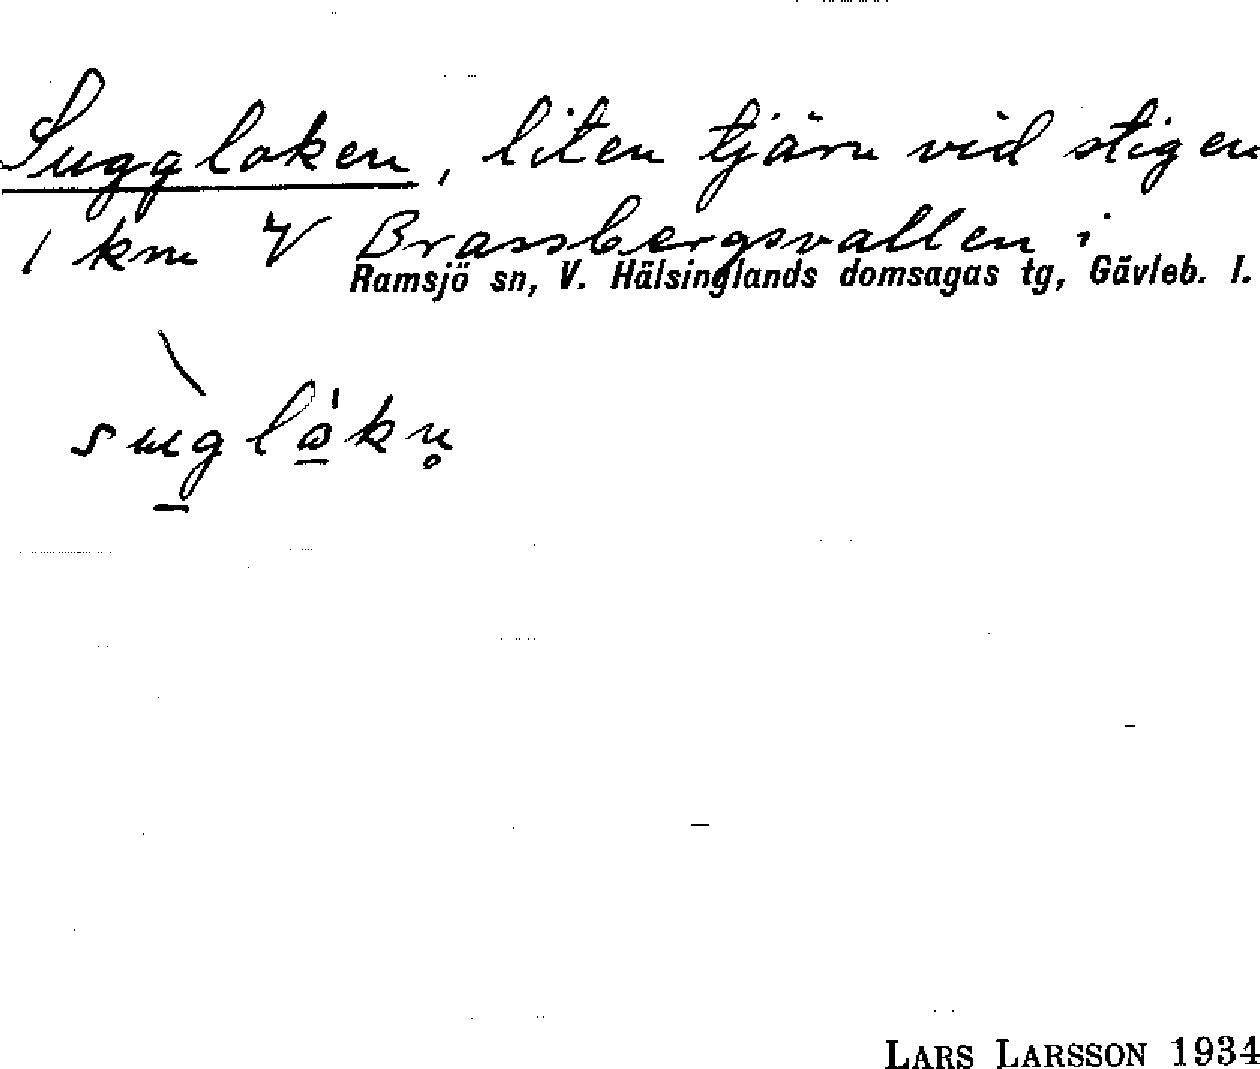 Suggloken, liten tjärn vid stigen
1 km V Brassbergsvallen i
Ramsjö sn, V. Hälsinglands domsagas tg, Gävleb. l.
sug̲lò̲kn̥
LARS LARSSON 1934